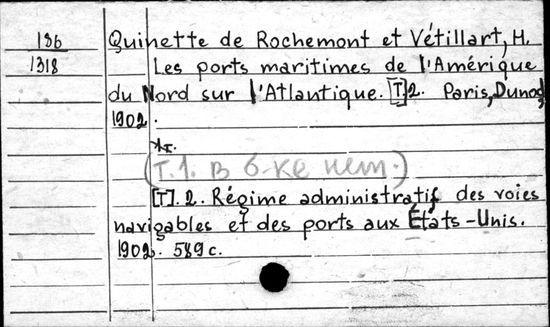 186
1318
Quinette de Rochemont et Vétillart, H.
Les ports maritimes de l'Amérique
du Nord sur l'Atlantique. [T]2. Paris, Dunod,
1902.
(Т.1. В б-ке нем.)
[T]. 2. Régime administratif des voies
navigables et des ports aux États-Unis.
1902. 589 c.